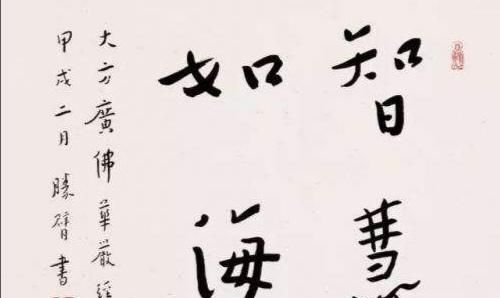 智慧
如海
大方廣佛華嚴經
甲戌二月 勝哲書